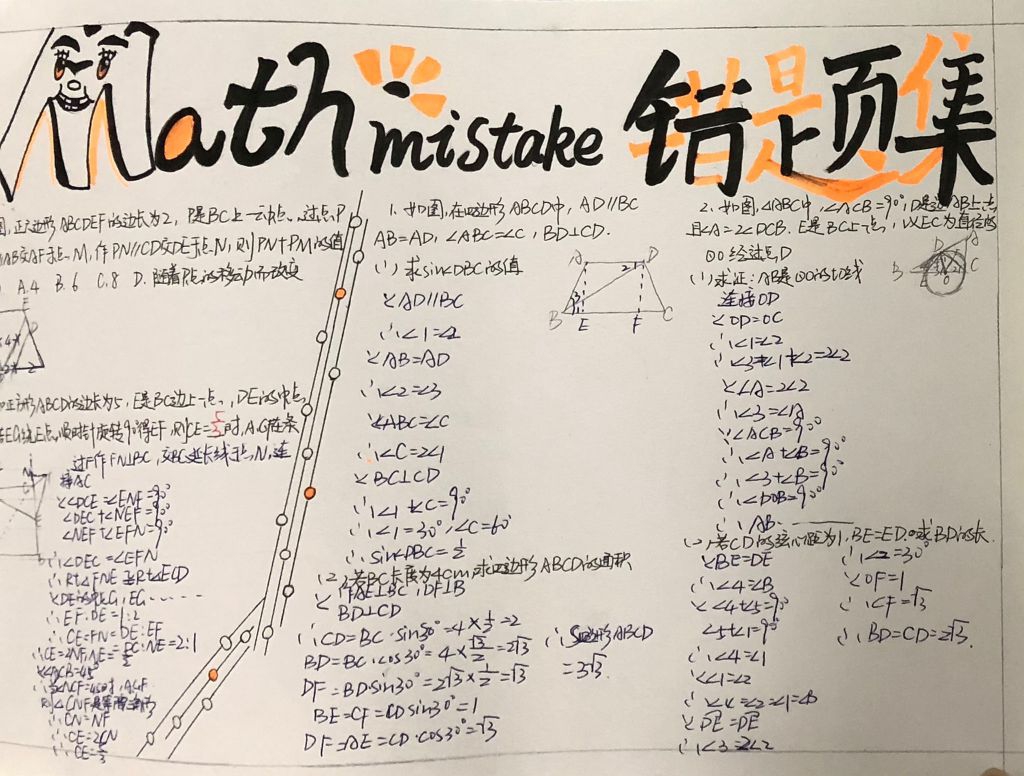 Math mistake 错题集
图,正六边形ABCDEF的边长为2,P是BC上一动点,过点P
AB交AF于点M,作PN//CD交DE于点N,则PN+PM的值
A.4 B.6 C.8 D.随着P点的移动而改变
正方形ABCD的边长为5,E是BC边上一点,DE的中点
EG绕E点顺时针旋转90°得EF,则CE=5/3时,A,C,F在一条
过F作FN⊥BC,交BC延长线于点N,连
接AC
∵∠DCE=∠ENF=90°
∠DEC+∠NEF=90°
∠NEF+∠EFN=90°
∴∠DEC=∠EFN
∴Rt△FNE≅Rt△ECD
∵DE的中点G,EG......
∴EF:DE=1:2
∴CE:FN=DE:EF
=DC:NE=2:1
∴CE=2NF,NE=
∵∠ACB=45°
∴当∠NCF=45°时,A,C,F
则△CNF是等腰三角形
∴CN=NF
∴CE=2CN
∴CE=5/3
1.如图,在四边形ABCD中,AD//BC
AB=AD,∠ABC=∠C,BD⊥CD.
(1)求sin∠DBC的值
∵AD//BC
∴∠1=∠2
∵AB=AD
∴∠2=∠3
∵∠ABC=∠C
∴∠C=2∠1
∵BC⊥CD
∴∠1+∠C=90°
∴∠1=30°,∠C=60°
∴sin∠DBC=1/2
(2)若BC长度为4cm,求四边形ABCD的面积
∵作AE⊥BC,DF⊥B
BD⊥CD
∴CD=BC·sin30°=4×1/2=2
BD=BC·cos30°=4×√3/2=2√3
DF=BDsin30°=2√3×1/2=√3
BE=CF=CDsin30°=1
DF=AE=CD·cos30°=√3
∴S四边形ABCD
=3√3.
A D B E F C
2.如图,△ABC中,∠ACB=90°,D是边AB上一点
且∠A=2∠DCB.E是BC上一点,以EC为直径的
⊙O经过点D
(1)求证:AB是⊙O的切线
连接OD
∵OD=OC
∴∠1=∠2
∴∠3=∠1+∠2=2∠2
∵∠A=2∠2
∴∠3=∠A
∵∠ACB=90°
∴∠A+∠B=90°
∴∠3+∠B=90°
∴∠DOB=90°
∴AB
(2)若CD的弦心距为1,BE=ED.求BD的长.
∵BE=DE
∴∠4=∠B
∵∠4+∠5=90°
∠5+∠1=90°
∴∠4=∠1
∵∠1=∠2
∴∠4=∠2=∠1=∠B
∵DE=DE
∴∠3=2∠2
∴∠2=30°
∵OF=1
∴CF=√3
∴BD=CD=2√3.